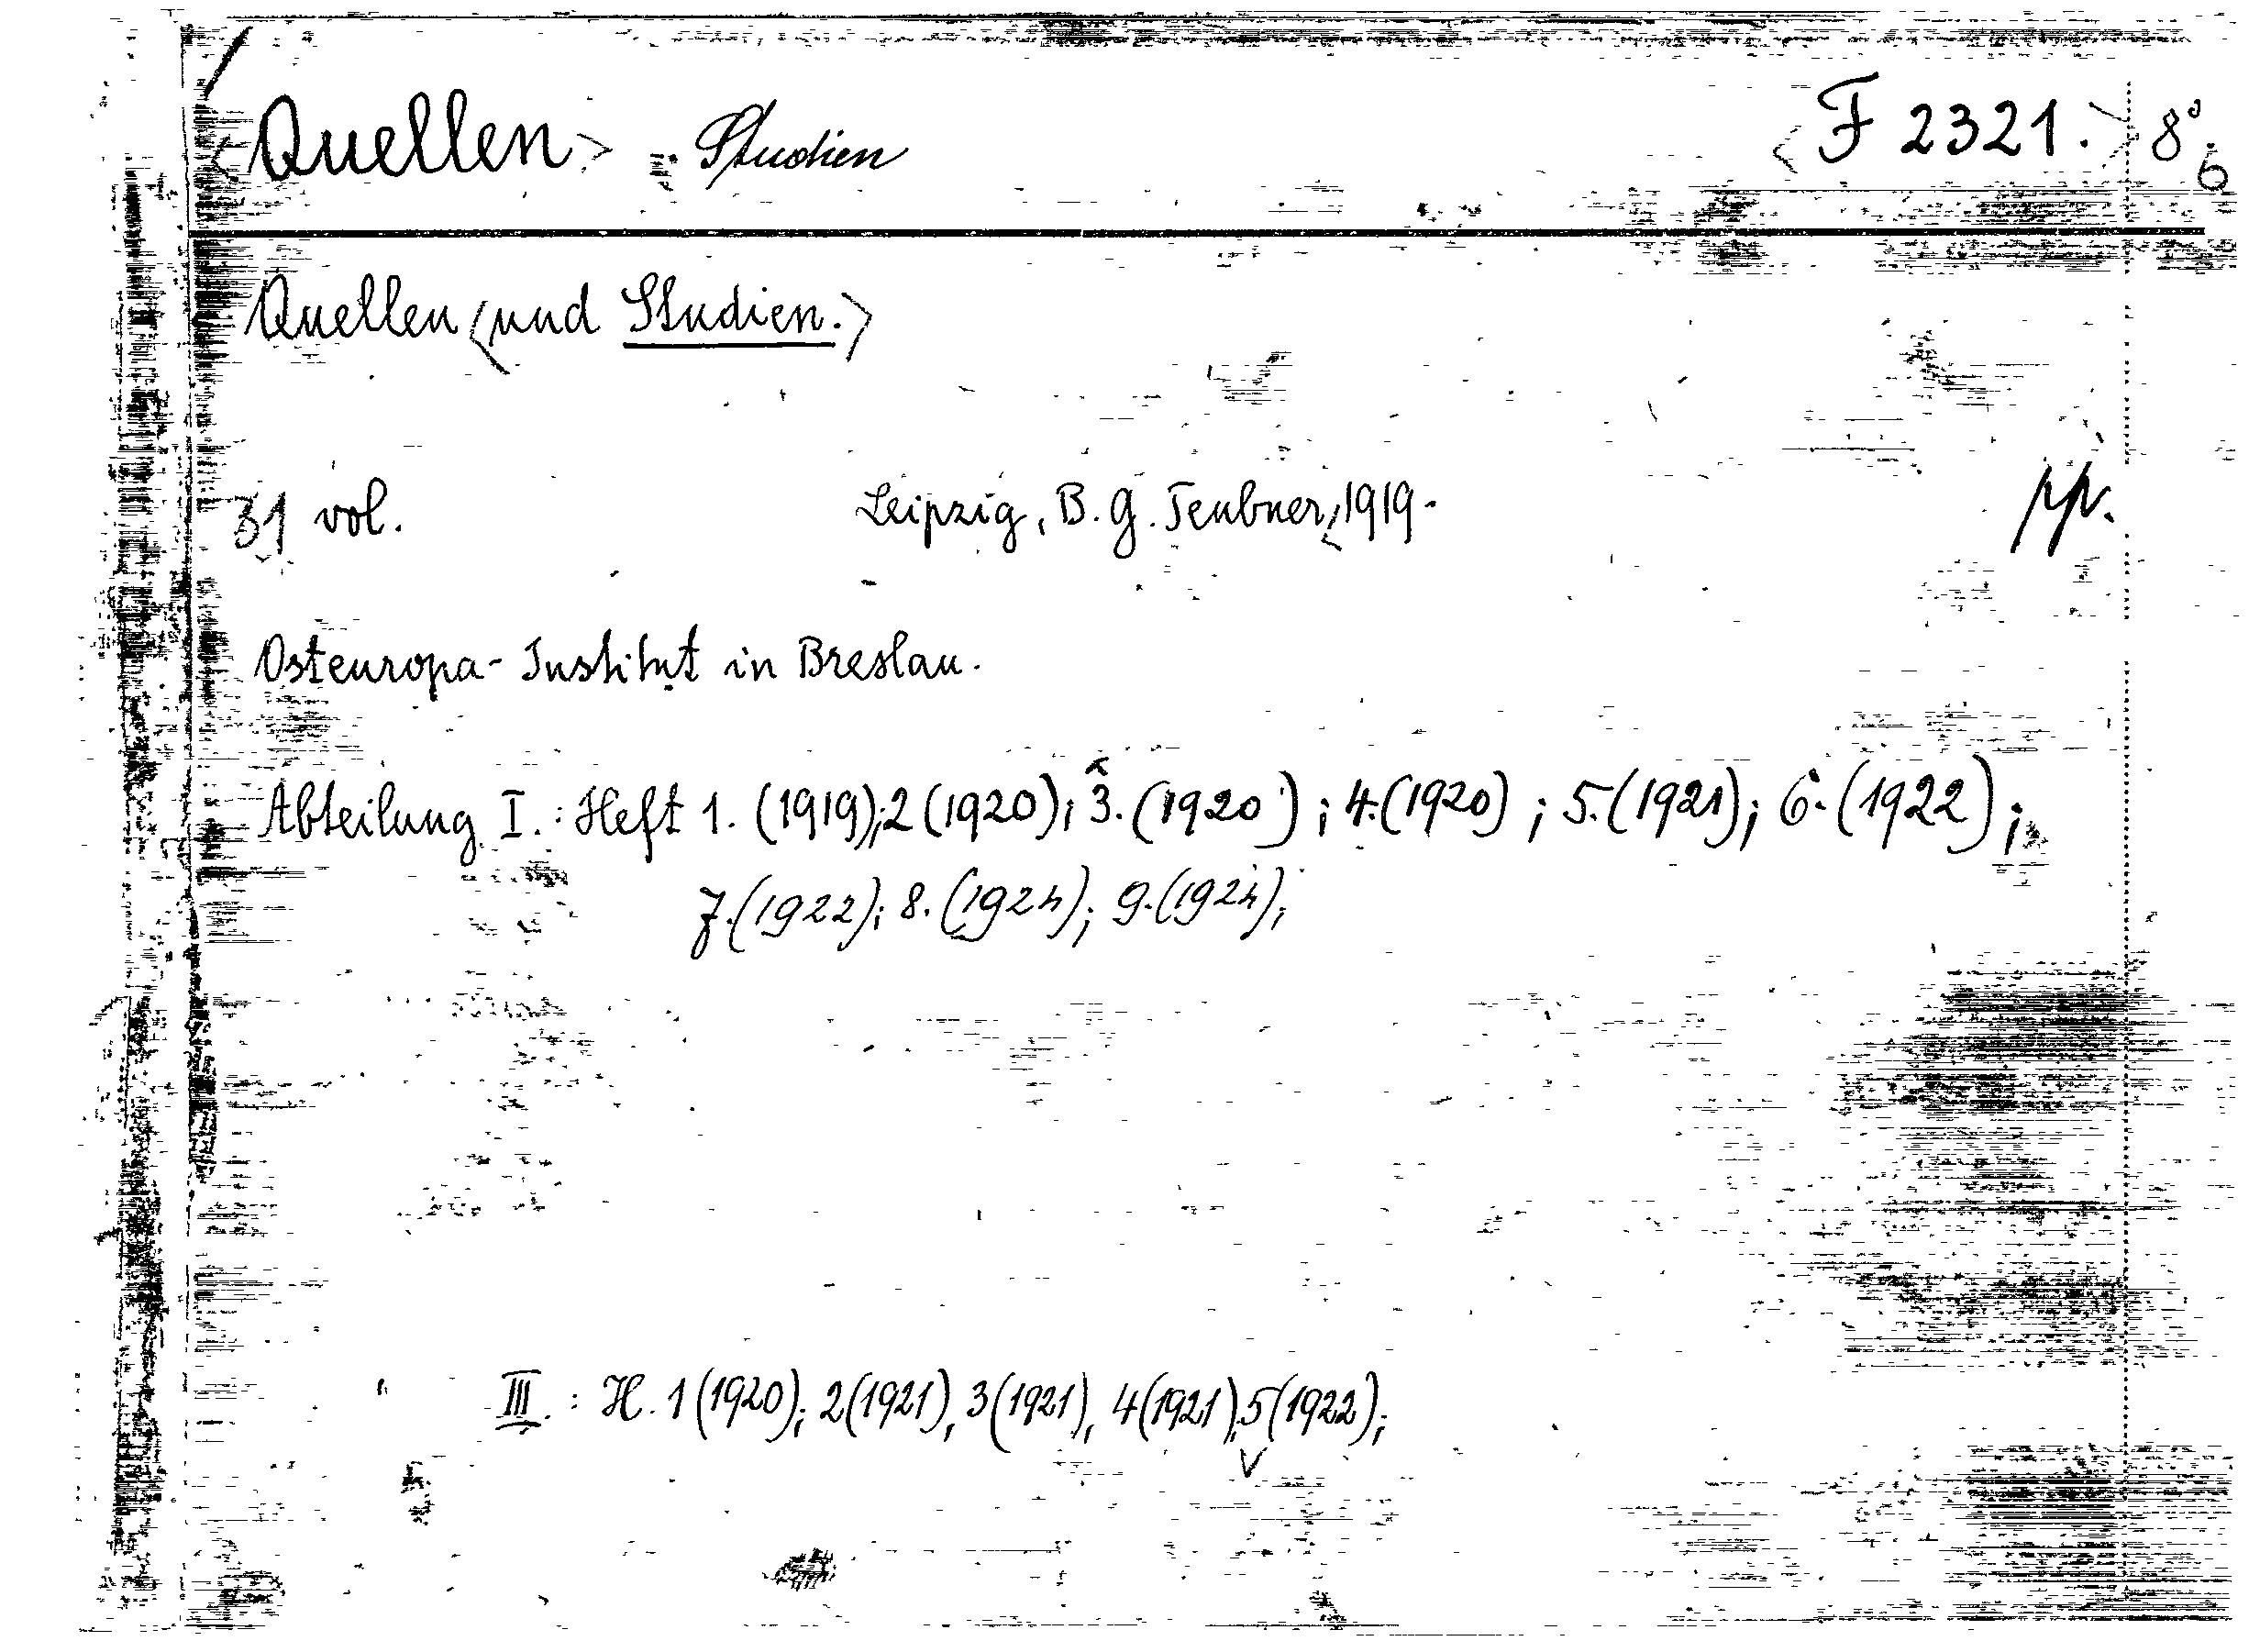 <Quellen> : Studien <F 2321.> 8° 6
Quellen <und Studien.>
31 vol. Leipzig, B. G. Teubner, <1919- pp.
Osteuropa-Institut in Breslau.
Abteilung I. : Heft 1. (1919); 2 (1920); 3. (1920) ; 4. (1920) ; 5. (1921); 6. (1922) ;
7. (1922); 8. (1924); 9. (1924);
III. : H. 1 (1920); 2 (1921), 3 (1921), 4 (1921), 5 (1922);